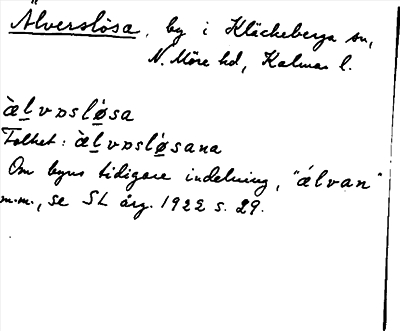 Älverslösa, by i Kläckeberga sn,
N. Möre hd, Kalmar l.
ὰl̲vɒslǿ̲sa
Folket: ὰl̲vɒslǿ̲sana
Om byns tidigare indelning, "álvan"
m.m., se SL årg. 1922 s. 29.